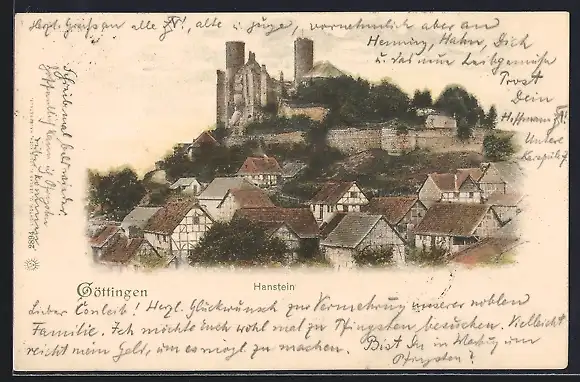 Herzl. Grüße an alle, alte u. junge, vornehmlich aber an
Henning, Hahn, Dich
u. das neue Leibgemüse
Prost
Dein
Hoffmann
Unsere
Schreib mal bald wieder
2894
Göttingen
Hanstein
Lieber Conleib! Herzl. Glückwunsch zur Vermehrung unserer noblen
Familie. Ich möchte Euch wohl mal zu Pfingsten besuchen. Vielleicht
reicht mein Geld, um es mögl. zu machen. Bist Du in um
Pfingsten?